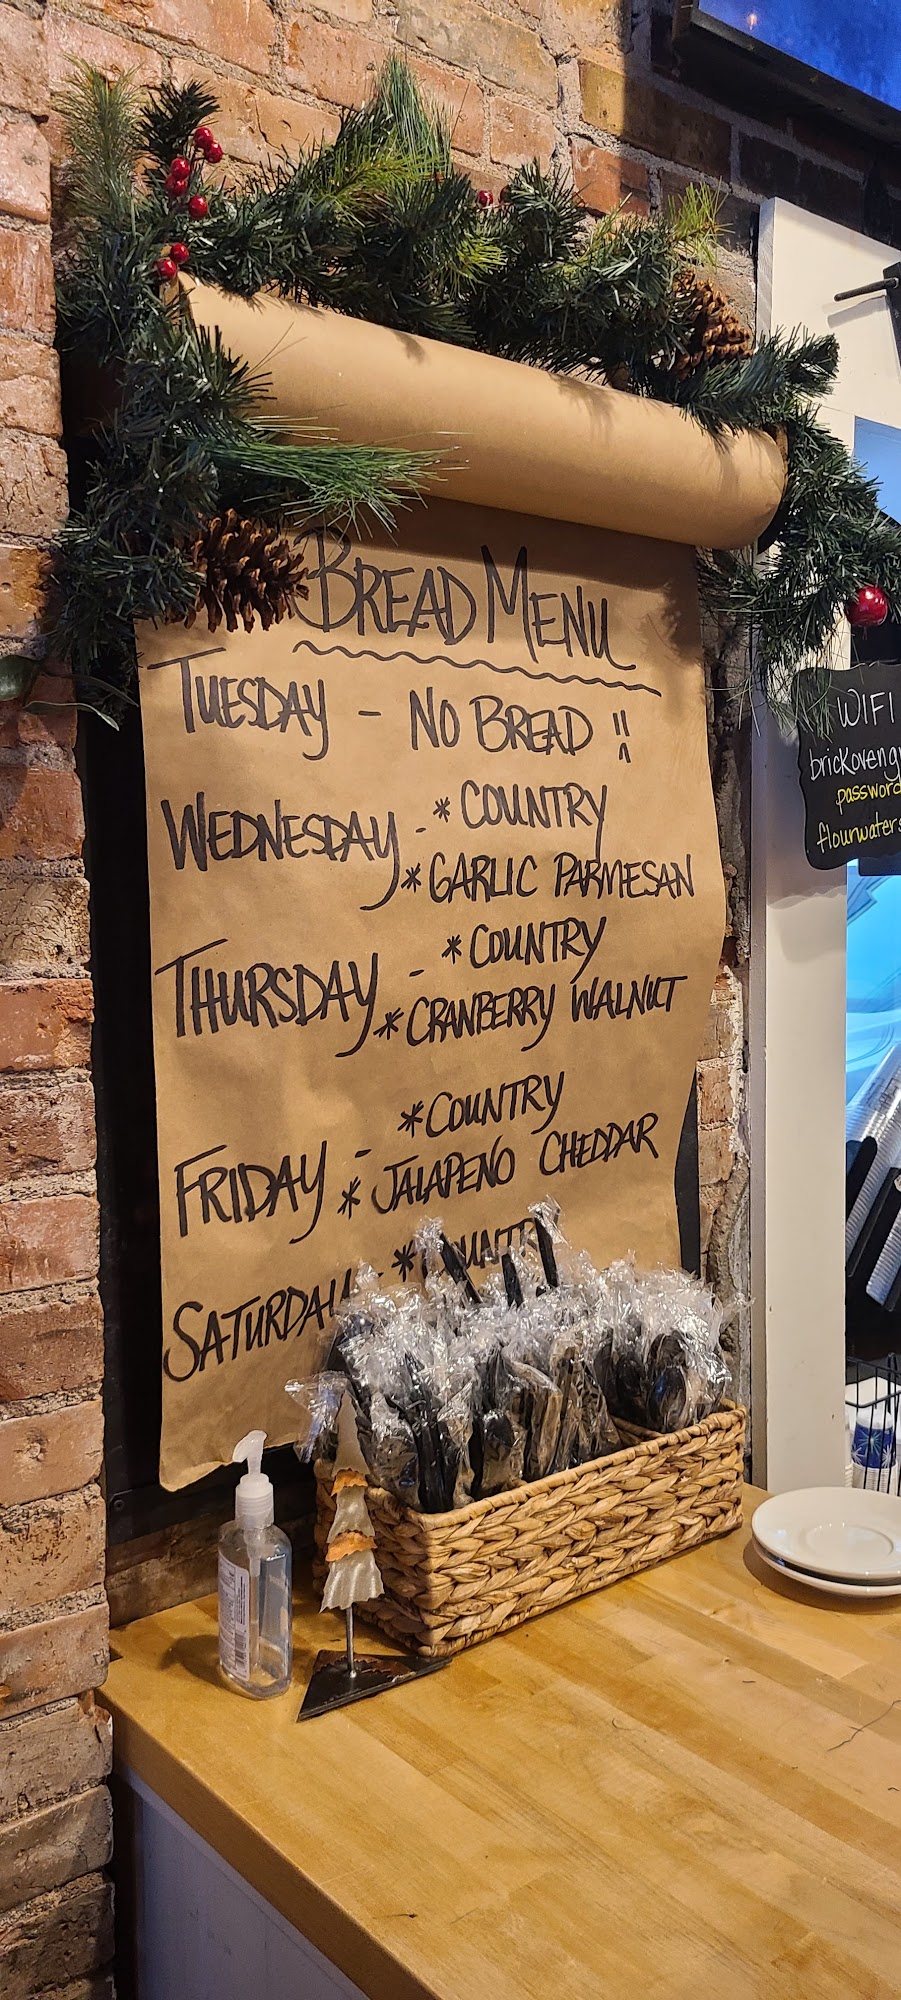 BREAD MENU
TUESDAY - NO BREAD !!
WEDNESDAY - * COUNTRY
* GARLIC PARMESAN
THURSDAY - * COUNTRY
* CRANBERRY WALNUT
FRIDAY - * COUNTRY
* JALAPEÑO CHEDDAR
SATURDAY - *
WIFI
brickoveng
password
flourwaters